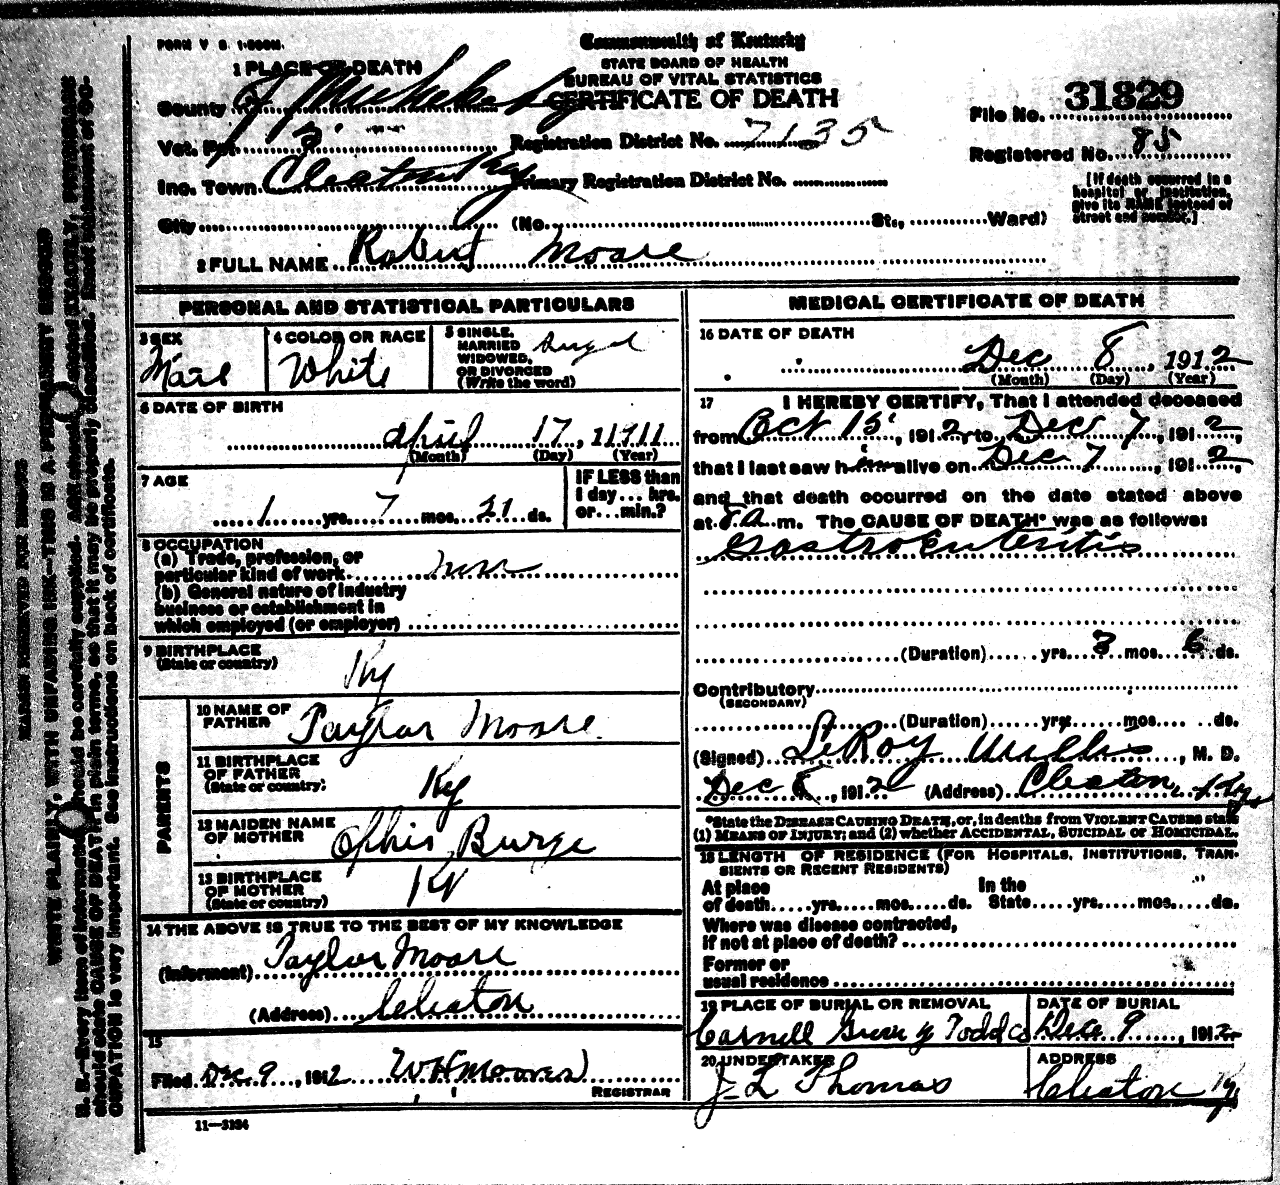 FORM V. S. 1-500M.
Commonwealth of Kentucky
STATE BOARD OF HEALTH
BUREAU OF VITAL STATISTICS
CERTIFICATE OF DEATH
1 PLACE OF DEATH
County
Vot. Pct. 3
Inc. Town Cleaton Ky
City (No. St., Ward)
Registration District No. 7135
Primary Registration District No.
File No. 31829
Registered No. 85
[If death occurred in a hospital or institution, give its NAME instead of street and number.]
2 FULL NAME Robert Moore
PERSONAL AND STATISTICAL PARTICULARS
3 SEX
Male
4 COLOR OR RACE
White
5 SINGLE, MARRIED WIDOWED, OR DIVORCED (Write the word)
6 DATE OF BIRTH
April 17, 1911
(Month) (Day) (Year)
7 AGE
1 yrs. 7 mos. 21 ds.
IF LESS than 1 day... hrs. or... min.?
8 OCCUPATION
(a) Trade, profession, or
particular kind of work
(b) General nature of industry
business or establishment in
which employed (or employer)
9 BIRTHPLACE
(State or country)
Ky
PARENTS
10 NAME OF FATHER
Taylor Moore
11 BIRTHPLACE OF FATHER
(State or country)
Ky
12 MAIDEN NAME OF MOTHER
Burge
13 BIRTHPLACE OF MOTHER
(State or country)
Ky
14 THE ABOVE IS TRUE TO THE BEST OF MY KNOWLEDGE
(Informant) Taylor Moore
(Address) Cleaton
15
Filed Dec 9, 1912 W H Moore
REGISTRAR
11—3184
MEDICAL CERTIFICATE OF DEATH
16 DATE OF DEATH
Dec 8, 1912
(Month) (Day) (Year)
17 I HEREBY CERTIFY, That I attended deceased
from Oct 15, 1912, to Dec 7, 1912,
that I last saw him alive on Dec 7, 1912,
and that death occurred on the date stated above
at 8 a m. The CAUSE OF DEATH* was as follows:
Gastroenteritis
(Duration) yrs. 3 mos. 6 ds.
Contributory
(SECONDARY)
(Duration) yrs. mos. ds.
(Signed) LeRoy Willis, M. D.
Dec 8, 1912 (Address) Cleaton, Ky
*State the DISEASE CAUSING DEATH, or, in deaths from VIOLENT CAUSES state
(1) MEANS OF INJURY; and (2) whether ACCIDENTAL, SUICIDAL or HOMICIDAL.
18 LENGTH OF RESIDENCE (FOR HOSPITALS, INSTITUTIONS, TRANSIENTS OR RECENT RESIDENTS)
At place of death yrs. mos. ds. In the State yrs. mos. ds.
Where was disease contracted,
if not at place of death?
Former or
usual residence
19 PLACE OF BURIAL OR REMOVAL
Todd Co
DATE OF BURIAL
Dec 9, 1912
20 UNDERTAKER
J L Thomas
ADDRESS
Cleaton Ky
MARGIN RESERVED FOR BINDING
WRITE PLAINLY, WITH UNFADING INK—THIS IS A PERMANENT RECORD
N. B.—Every item of information should be carefully supplied. AGE should be stated EXACTLY. PHYSICIANS
should state CAUSE OF DEATH in plain terms, so that it may be properly classified. Exact statement of OC-
CUPATION is very important. See instructions on back of certificate.